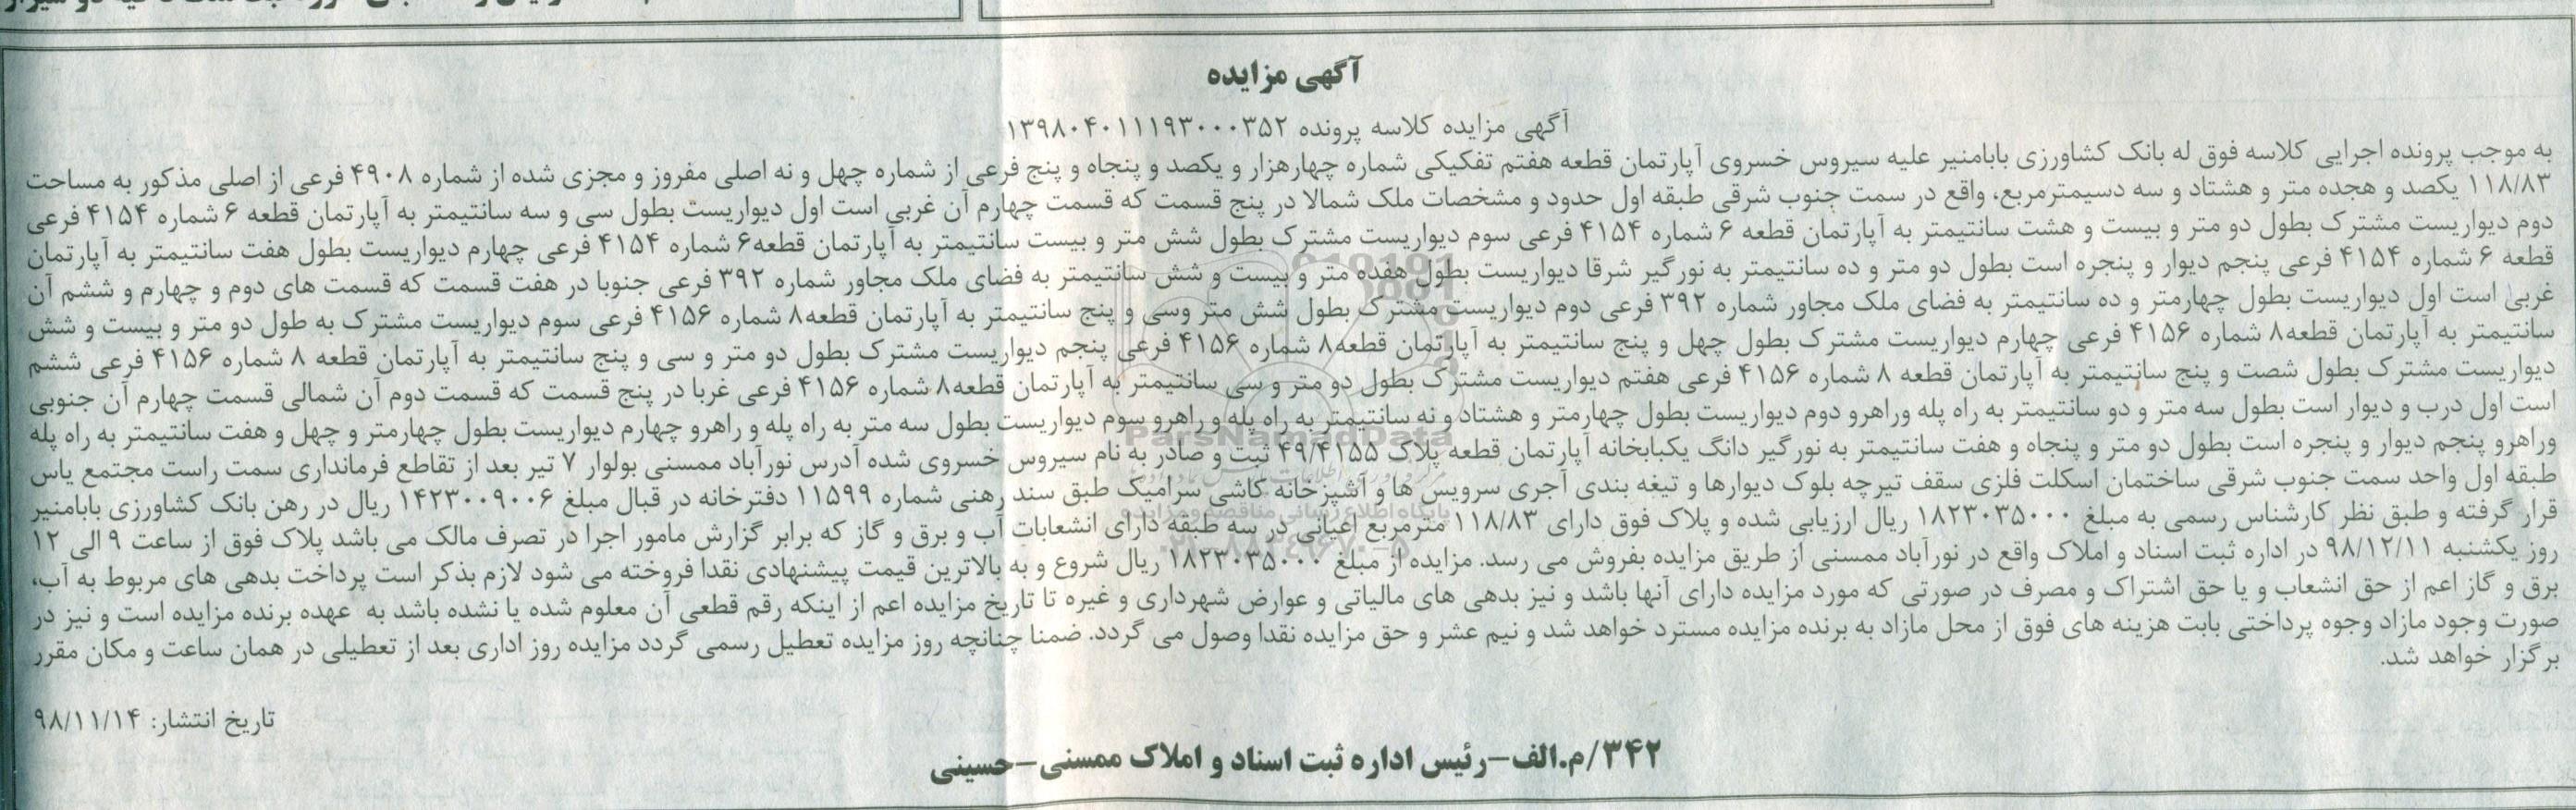 آگهی مزایده
آگهی مزایده کلاسه پرونده ۱۳۹۸۰۴۰۱۱۱۹۳۰۰۰۳۵۲
به موجب پرونده اجرایی کلاسه فوق له بانک کشاورزی بابامنیر علیه سیروس خسروی آپارتمان قطعه هفتم تفکیکی شماره چهارهزار و یکصد و پنجاه و پنج فرعی از شماره چهل و نه اصلی مفروز و مجزی شده از شماره ۴۹۰۸ فرعی از اصلی مذکور به مساحت
۱۱۸/۸۳ یکصد و هجده متر و هشتاد و سه دسیمترمربع، واقع در سمت جنوب شرقی طبقه اول حدود و مشخصات ملک شمالا در پنج قسمت که قسمت چهارم آن غربی است اول دیواریست بطول سی و سه سانتیمتر به آپارتمان قطعه ۶ شماره ۴۱۵۴ فرعی
دوم دیواریست مشترک بطول دو متر و بیست و هشت سانتیمتر به آپارتمان قطعه ۶ شماره ۴۱۵۴ فرعی سوم دیواریست مشترک بطول شش متر و بیست سانتیمتر به آپارتمان قطعه۶ شماره ۴۱۵۴ فرعی چهارم دیواریست بطول هفت سانتیمتر به آپارتمان
قطعه ۶ شماره ۴۱۵۴ فرعی پنجم دیوار و پنجره است بطول دو متر و ده سانتیمتر به نورگیر شرقا دیواریست بطول هفده متر و بیست و شش سانتیمتر به فضای ملک مجاور شماره ۳۹۲ فرعی جنوبا در هفت قسمت که قسمت های دوم و چهارم و ششم آن
غربی است اول دیواریست بطول چهارمتر و ده سانتیمتر به فضای ملک مجاور شماره ۳۹۲ فرعی دوم دیواریست مشترک بطول شش متر وسی و پنج سانتیمتر به آپارتمان قطعه۸ شماره ۴۱۵۶ فرعی سوم دیواریست مشترک به طول دو متر و بیست و شش
سانتیمتر به آپارتمان قطعه۸ شماره ۴۱۵۶ فرعی چهارم دیواریست مشترک بطول چهل و پنج سانتیمتر به آپارتمان قطعه۸ شماره ۴۱۵۶ فرعی پنجم دیواریست مشترک بطول دو متر و سی و پنج سانتیمتر به آپارتمان قطعه ۸ شماره ۴۱۵۶ فرعی ششم
دیواریست مشترک بطول شصت و پنج سانتیمتر به آپارتمان قطعه ۸ شماره ۴۱۵۶ فرعی هفتم دیواریست مشترک بطول دو متر و سی سانتیمتر به آپارتمان قطعه۸ شماره ۴۱۵۶ فرعی غربا در پنج قسمت که قسمت دوم آن شمالی قسمت چهارم آن جنوبی
است اول درب و دیوار است بطول سه متر و دو سانتیمتر به راه پله وراهرو دوم دیواریست بطول چهارمتر و هشتاد و نه سانتیمتر به راه پله و راهرو سوم دیواریست بطول سه متر به راه پله و راهرو چهارم دیواریست بطول چهارمتر و چهل و هفت سانتیمتر به راه پله
وراهرو پنجم دیوار و پنجره است بطول دو متر و پنجاه و هفت سانتیمتر به نورگیر دانگ یکبابخانه آپارتمان قطعه پلاک ۴۹/۴۱۵۵ ثبت و صادر به نام سیروس خسروی شده آدرس نورآباد ممسنی بولوار ۷ تیر بعد از تقاطع فرمانداری سمت راست مجتمع یاس
طبقه اول واحد سمت جنوب شرقی ساختمان اسکلت فلزی سقف تیرچه بلوک دیوارها و تیغه بندی آجری سرویس ها و آشپزخانه کاشی سرامیک طبق سند رهنی شماره ۱۱۵۹۹ دفترخانه در قبال مبلغ ۱۴۲۳۰۰۹۰۰۶ ریال در رهن بانک کشاورزی بابامنیر
قرار گرفته و طبق نظر کارشناس رسمی به مبلغ ۱۸۲۳۰۳۵۰۰۰ ریال ارزیابی شده و پلاک فوق دارای ۱۱۸/۸۳ مترمربع اعیانی در سه طبقه دارای انشعابات آب و برق و گاز که برابر گزارش مامور اجرا در تصرف مالک می باشد پلاک فوق از ساعت ۹ الی ۱۲
روز یکشنبه ۹۸/۱۲/۱۱ در اداره ثبت اسناد و املاک واقع در نورآباد ممسنی از طریق مزایده بفروش می رسد. مزایده از مبلغ ۱۸۲۳۰۳۵۰۰۰ ریال شروع و به بالاترین قیمت پیشنهادی نقدا فروخته می شود لازم بذکر است پرداخت بدهی های مربوط به آب،
برق و گاز اعم از حق انشعاب و یا حق اشتراک و مصرف در صورتی که مورد مزایده دارای آنها باشد و نیز بدهی های مالیاتی و عوارض شهرداری و غیره تا تاریخ مزایده اعم از اینکه رقم قطعی آن معلوم شده یا نشده باشد به عهده برنده مزایده است و نیز در
صورت وجود مازاد وجوه پرداختی بابت هزینه های فوق از محل مازاد به برنده مزایده مسترد خواهد شد و نیم عشر و حق مزایده نقدا وصول می گردد. ضمنا چنانچه روز مزایده تعطیل رسمی گردد مزایده روز اداری بعد از تعطیلی در همان ساعت و مکان مقرر
برگزار خواهد شد.
تاریخ انتشار: ۹۸/۱۱/۱۴
۳۴۲/م.الف-رئیس اداره ثبت اسناد و املاک ممسنی-حسینی
ParsNamadData
پایگاه اطلاع رسانی مناقصه و مزایده